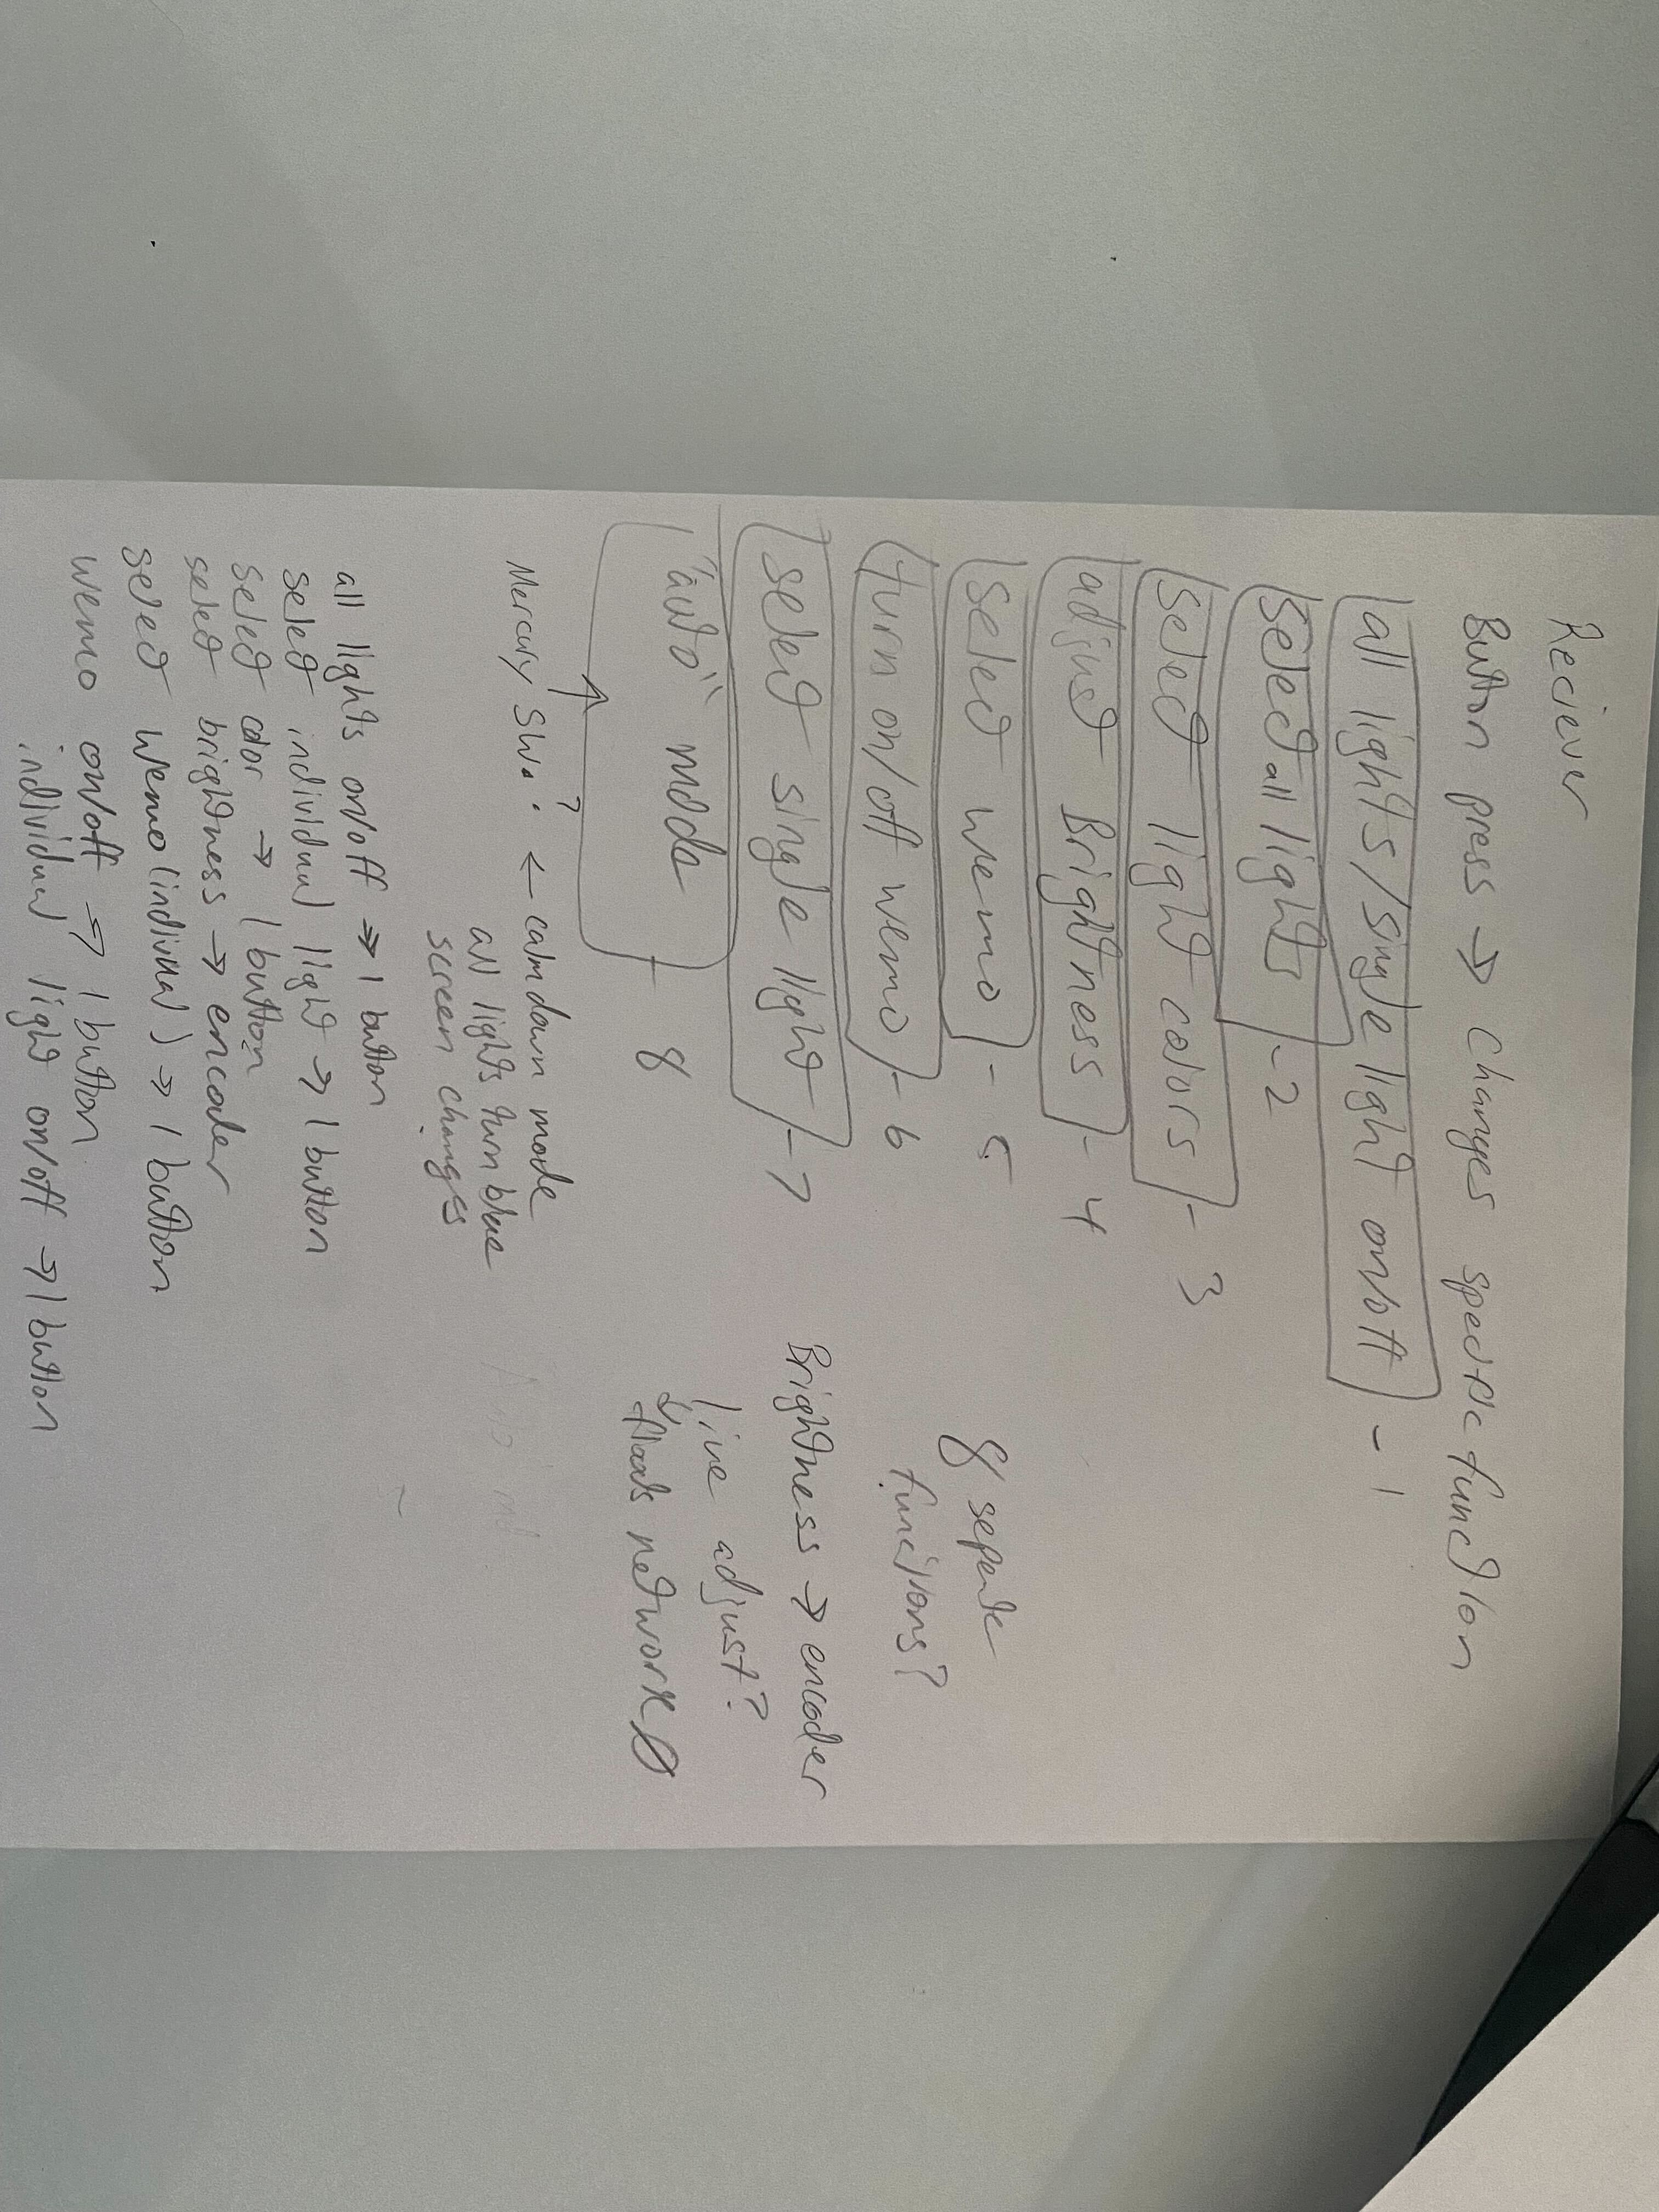 Reciever
Button press → changes specific function
all lights/single light on/off - 1
select all lights - 2
select light colors - 3
adjust Brightness - 4
select wemo - 5
turn on/off wemo - 6
select single light - 7
"auto" mode - 8
8 seperate
functions?
Brightness → encoder
live adjust?
↳ floods network
Mercury Sw.? ← calm down mode
all lights turn blue
screen changes
all lights on/off → 1 button
select individual light → 1 button
select color → 1 button
select brightness → encoder
select wemo (individual) → 1 button
wemo on/off → 1 button
individual light on/off → 1 button